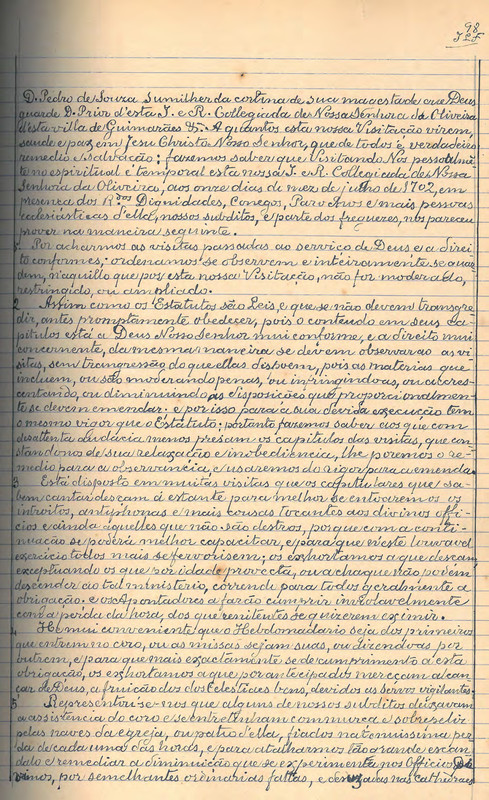 98
D. Pedro de Souza Sumilher da cortina de Sua magestade que Deus
guarde D. Prior d'esta I. e R. Collegiada de Nossa Senhora da Oliveira
d'esta villa de Guimarães &. A quantos esta nossa Visitação virem,
saude e paz em Jesu Christo Nosso Senhor, que de todos é verdadeiro
remedio e salvação; fazemos saber que Visitando Nós pessoalmen-
te no espiritual e temporal esta nossa I. e R. Collegiada de Nossa
Senhora da Oliveira, aos onze dias do mez de julho de 1702, em
presença dos R.dos Dignidades, Conegos, Parochos e mais pessoas
ecclesiasticas d'ella, nossos subditos, e parte dos freguezes, nos pareceu
prover na maneira seguinte.
Por acharmos as visitas passadas ao serviço de Deus e a direi-
to conformes; ordenamos se observem e inteiramente se guar-
dem, n'aquillo que por esta nossa Visitação, não for moderado,
restringido, ou ampliado.
2 Assim como os Estatutos são Leis, e que se não devem transgre-
dir, antes promptamente obedecer, pois o conteudo em seus Ca-
pitulos está a Deus Nosso Senhor mui conforme, e a direito mui
concernente, da mesma maneira se devem observar as vi-
sitas, sem transgressão do que ellas dispoem, pois as materias que
incluem, ou são moderando penas, ou infringindo-as, ou accres-
centando, ou diminuindo as disposições que proporcionalmen-
te se devem emendar: e por isso para a sua devida execução têm
o mesmo vigor que o Estatuto; portanto fazemos saber aos que com
desattenta audacia menos presam os capitulos das visitas, que con-
stando-nos de sua relaxação e inobediencia, lhe poremos o re-
medio para a observancia, e usaremos do rigor para a emenda.
3 Está disposto em muitas visitas que os capitulares que sa-
bem cantar desçam á estante para melhor se entoarem os
introitos, antiphonas e mais cousas tocantes aos divinos offi-
cios e ainda áquelles que não são destros, porque com a conti-
nuação se poderá melhor capacitar, e para que n'este louvavel
exercicio todos mais se fervorisem; os exhortamos a que desçam
exceptuando os que por idade provecta, ou achaque não podem
descender ao tal ministerio, correndo para todos geralmente a
obrigação. e os Apontadores a farão cumprir inviolavelmente
com a perda da hora, dos que renitentes se quizerem eximir.
4 He mui conveniente que o Hebdomadario seja dos primeiros
que entrem no coro, ou as missas sejam suas, ou dizendo-as por
outrem, e para que mais exactamente se dê cumprimento a esta
obrigação, os exhortamos a que por antecipados mereçam alcan-
çar de Deus, a fruição dos dos Celestiaes bens, devidos as servos vigilantes.
5 Representou-se-nos que alguns de nossos subditos deixavam
a assistencia do coro e se entretinham com murça e sobrepeliz
pelas naves da egreja, ou patio d'ella, fiados na tenuissima per-
da de cada uma das horas, e para atalharmos tão grande escan-
dalo e remediar a diminuição que se experimenta nos Officios Di-
vinos, por semelhantes ordinarias faltas, e nas Cathedraes